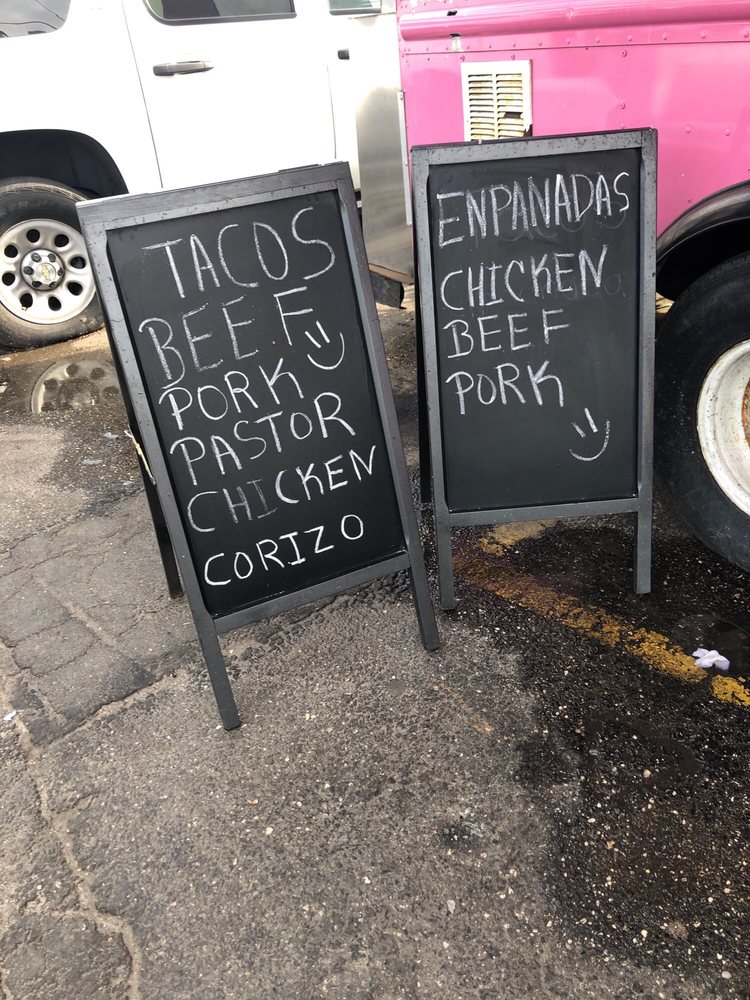 TACOS
BEEF
PORK
PASTOR
CHICKEN
CORIZO
ENPANADAS
CHICKEN
BEEF
PORK